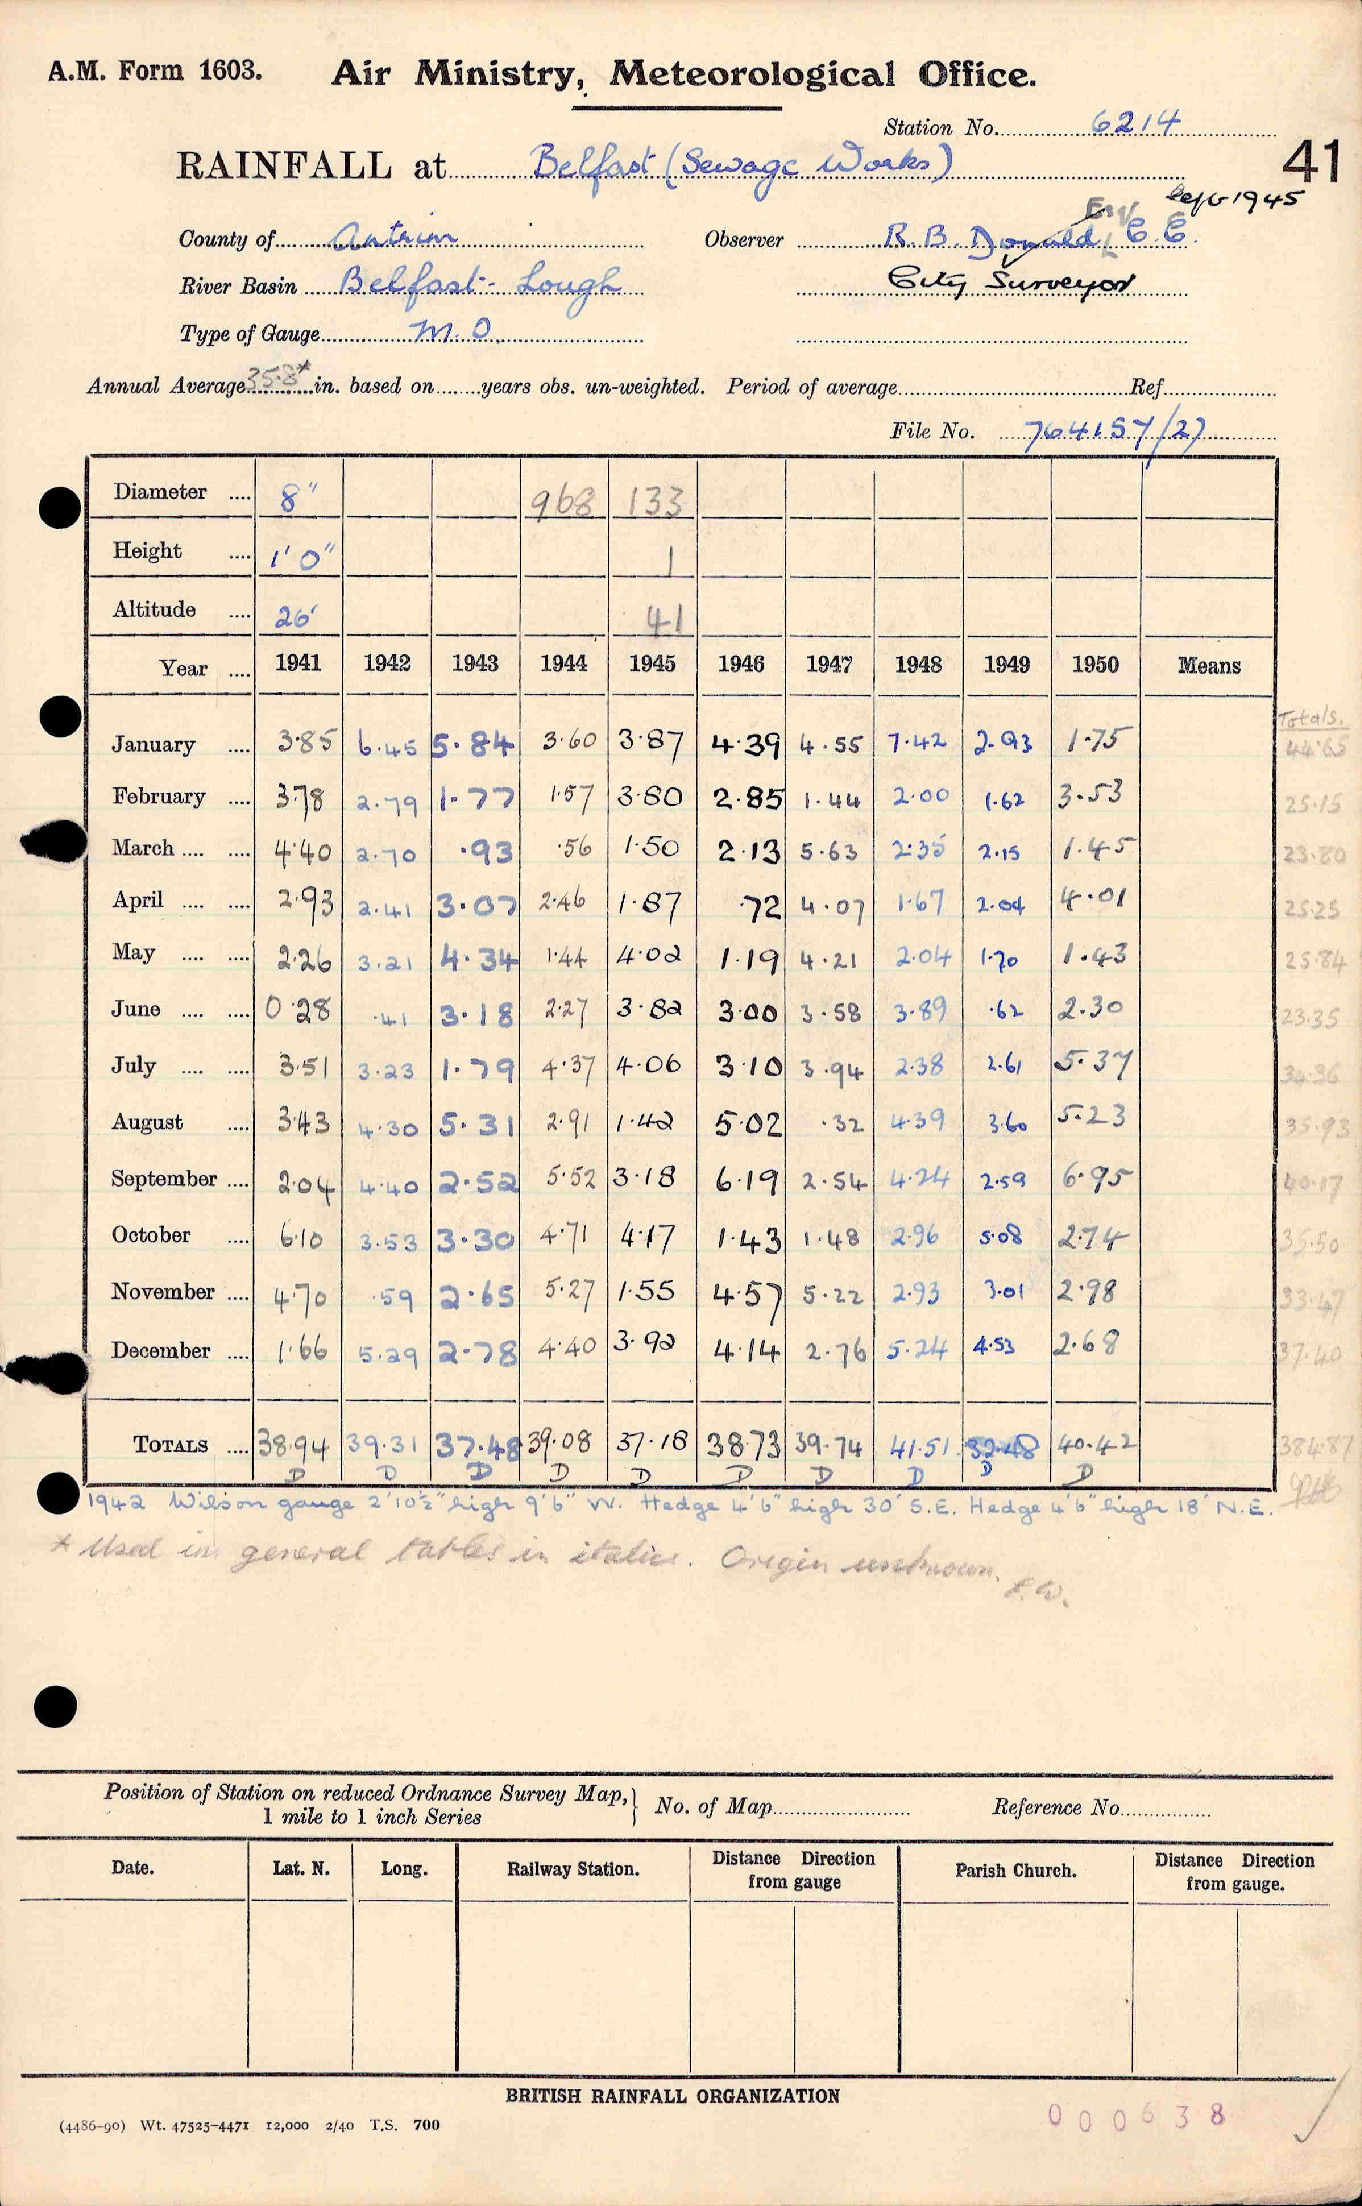 A.M. Form 1603. Air Ministry, Meteorological Office.
Station No. 6214
41
RAINFALL at Belfast (Sewage Works)
Sept 1945
County of Antrim Observer R. B. Donald, C.E.
River Basin Belfast Lough City Surveyor
Type of Gauge M.O.
Annual Average 35.8* in. based on years obs. un-weighted. Period of average Ref.
File No. 764157/27
Diameter .... 8" 968 133
Height .... 1' 0" 1
Altitude .... 26' 41
Year .... 1941 1942 1943 1944 1945 1946 1947 1948 1949 1950 Means
Totals.
January .... 3.85 6.45 5.84 3.60 3.87 4.39 4.55 7.42 2.93 1.75 44.65
February .... 3.78 2.79 1.77 1.57 3.80 2.85 1.44 2.00 1.62 3.53 25.15
March .... .... 4.40 2.70 .93 .56 1.50 2.13 5.63 2.35 2.15 1.45 23.80
April .... .... 2.93 2.41 3.07 2.46 1.87 .72 4.07 1.67 2.04 4.01 25.25
May .... .... 2.26 3.21 4.34 1.44 4.02 1.19 4.21 2.04 1.70 1.43 25.84
June .... .... 0.28 .41 3.18 2.27 3.82 3.00 3.58 3.89 .62 2.30 23.35
July .... .... 3.51 3.23 1.79 4.37 4.06 3.10 3.94 2.38 2.61 5.37 34.36
August .... 3.43 4.30 5.31 2.91 1.42 5.02 .32 4.39 3.60 5.23 35.93
September .... 2.04 4.40 2.52 5.52 3.18 6.19 2.54 4.24 2.59 6.95 40.17
October .... 6.10 3.53 3.30 4.71 4.17 1.43 1.48 2.96 5.08 2.74 35.50
November .... 4.70 .59 2.65 5.27 1.55 4.57 5.22 2.93 3.01 2.98 33.47
December .... 1.66 5.29 2.78 4.40 3.92 4.14 2.76 5.24 4.53 2.68 37.40
TOTALS .... 38.94 39.31 37.48 39.08 37.18 38.73 39.74 41.51 32.48 40.42 384.87
D D D D D D D D D D
1942 Wilson gauge 2'10½" high 9'6" W. Hedge 4'6" high 30' S.E. Hedge 4'6" high 18' N.E.
* Used in general tables in italics. Origin unknown.
F.W.
Position of Station on reduced Ordnance Survey Map,
1 mile to 1 inch Series
No. of Map Reference No.
Date. Lat. N. Long. Railway Station. Distance Direction from gauge Parish Church. Distance Direction from gauge.
BRITISH RAINFALL ORGANIZATION
(4486-90) Wt. 47525-4471 12,000 2/40 T.S. 700
000638